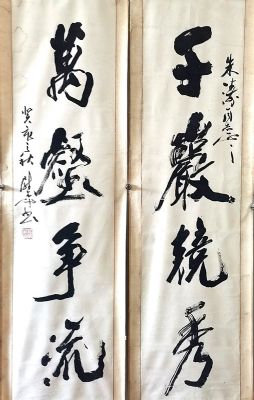 千巖競秀
朱濤同志
萬壑爭流
癸亥之秋